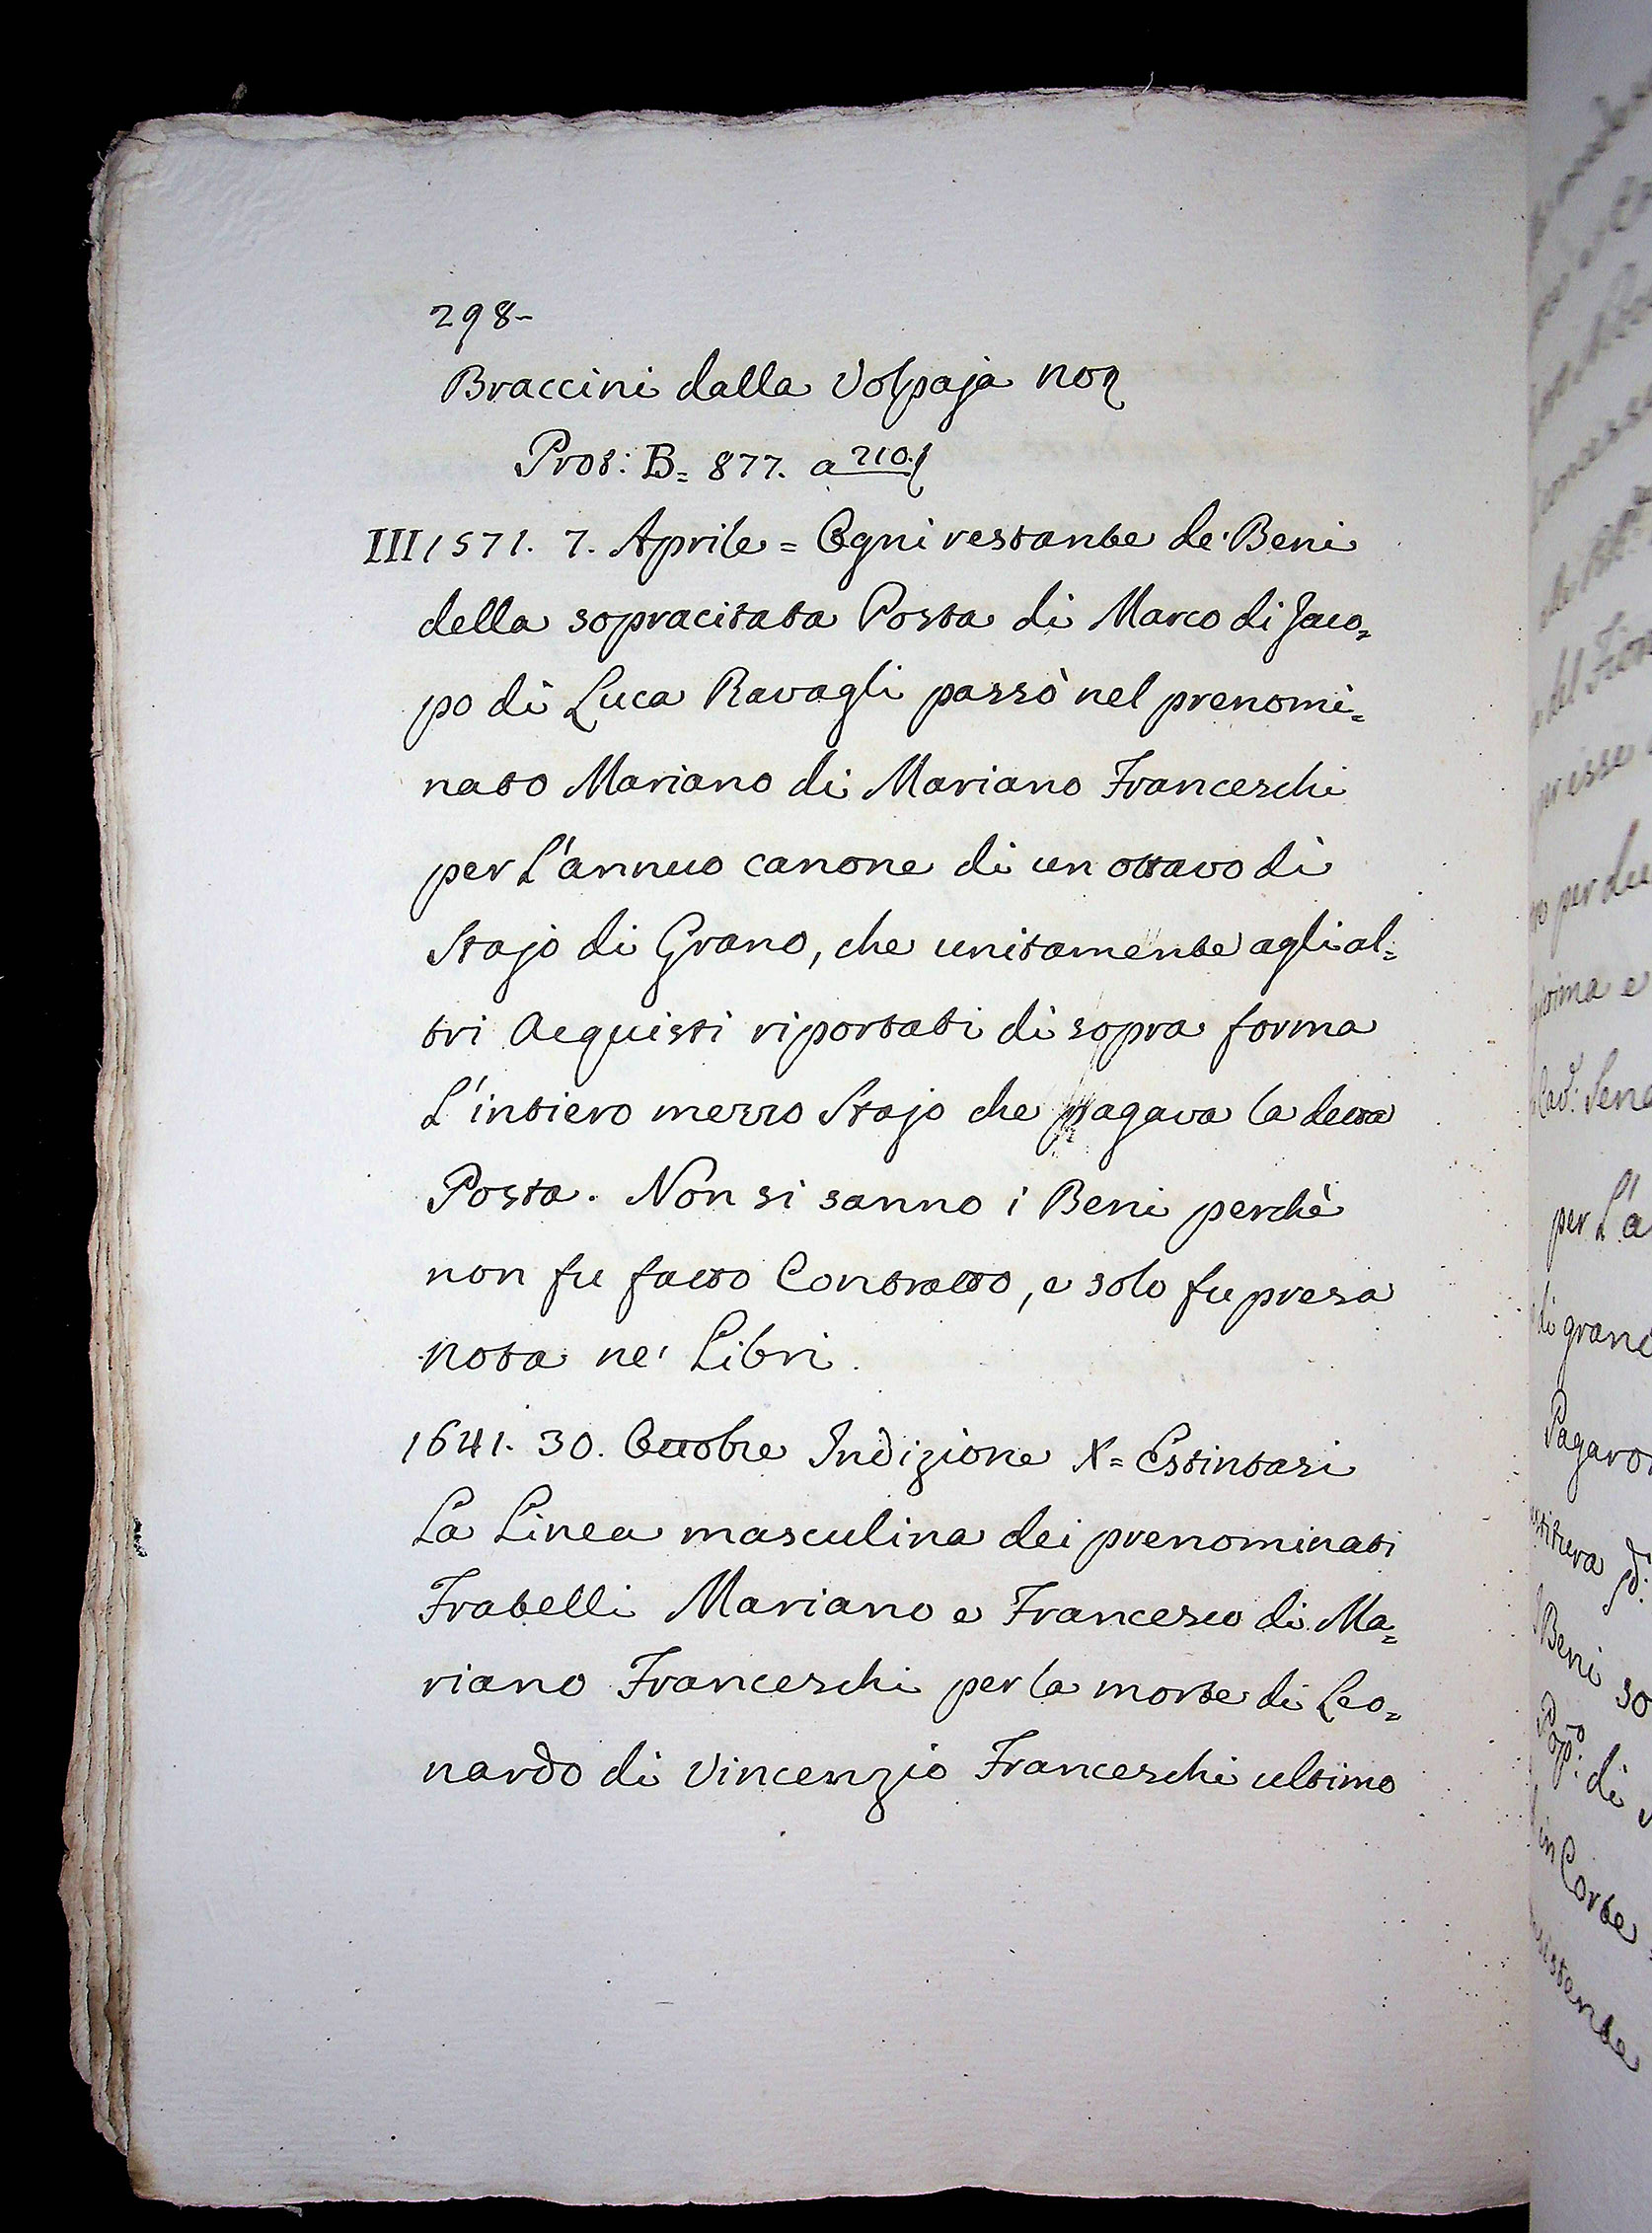 298-
Braccini dalla Volpaja no
Prot: B= 877. a 210.
III 1571. 7. Aprile = Ogni restante de' Beni
della sopracitata Posta di Marco di Jaco=
po di Luca Ravagli passò nel prenomi=
nato Mariano di Mariano Franceschi
per L'annuo canone di un ottavo di
Stajo di Grano, che unitamente agli al=
tri Acquisti riportati di sopra forma
L'intiero mezzo Stajo che pagava la detta
Posta. Non si sanno i Beni perchè
non fu fatto Contratto, e solo fu presa
nota ne' Libri.
1641. 30. Ottobre Indizione X= Estintasi
La Linea masculina dei prenominati
Fratelli Mariano e Francesco di Ma=
riano Franceschi per la morte di Leo=
nardo di Vincenzio Franceschi ultimo
presse
per du
e
per L'a
di grane
Beni so
di
in Corte